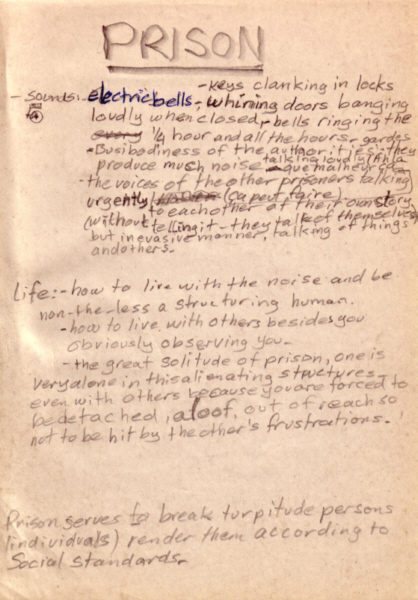 PRISON
- keys clanking in locks
- sounds:- electric bells - whirring doors banging
loudly when closed, - bells ringing the
every 1/4 hour and all the hours - gardes
- Busibodiness of the authorities: they
talking loudly
produce much noise - que malheureux
- the voices of the other prisoners talking
urgently (ca peut faire)
to each other of their own story
(without telling it - they talk of themselves
but in evasive manner, talking of things
and others -
Life:- how to live with the noise and be
non-the-less a structuring human.
- how to live with others besides you
obviously observing you -
- the great solitude of prison, one is
very alone in this alienating structures -
even with others because you are forced to
be detached, aloof, out of reach so
not to be hit by the other's frustrations.
Prison serves to break turpitude persons
(individuals) render them according to
Social standards -